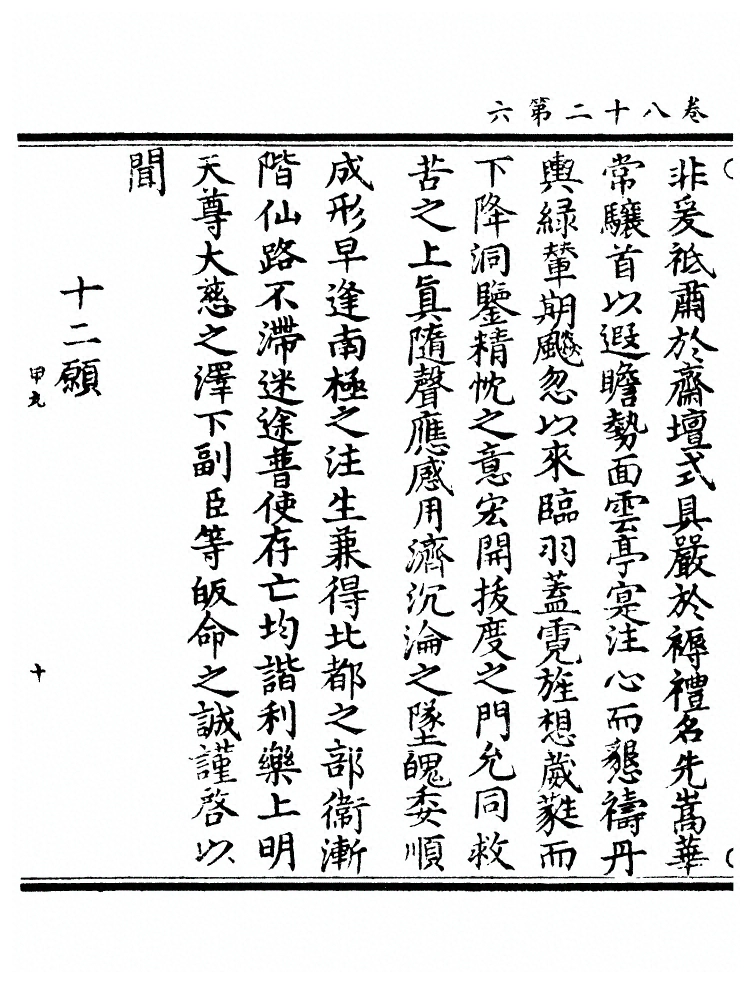 卷八十二第六
非爰祗肅於齋壇式具嚴於禱禮名先嵩華
常驤首以遐瞻勢面雲亭寔注心而懇禱丹
輿緑輦期飈忽以來臨羽蓋霓旌想葳蕤而
下降洞鑒精忱之意宏開拔度之門允同救
苦之上眞隨聲應感用濟沉淪之墜魄委順
成形早逢南極之注生兼得北都之部衛漸
階仙路不滯迷途普使存亡均諧利樂上明
天尊大慈之澤下副臣等皈命之誠謹啓以
聞
十二願
十